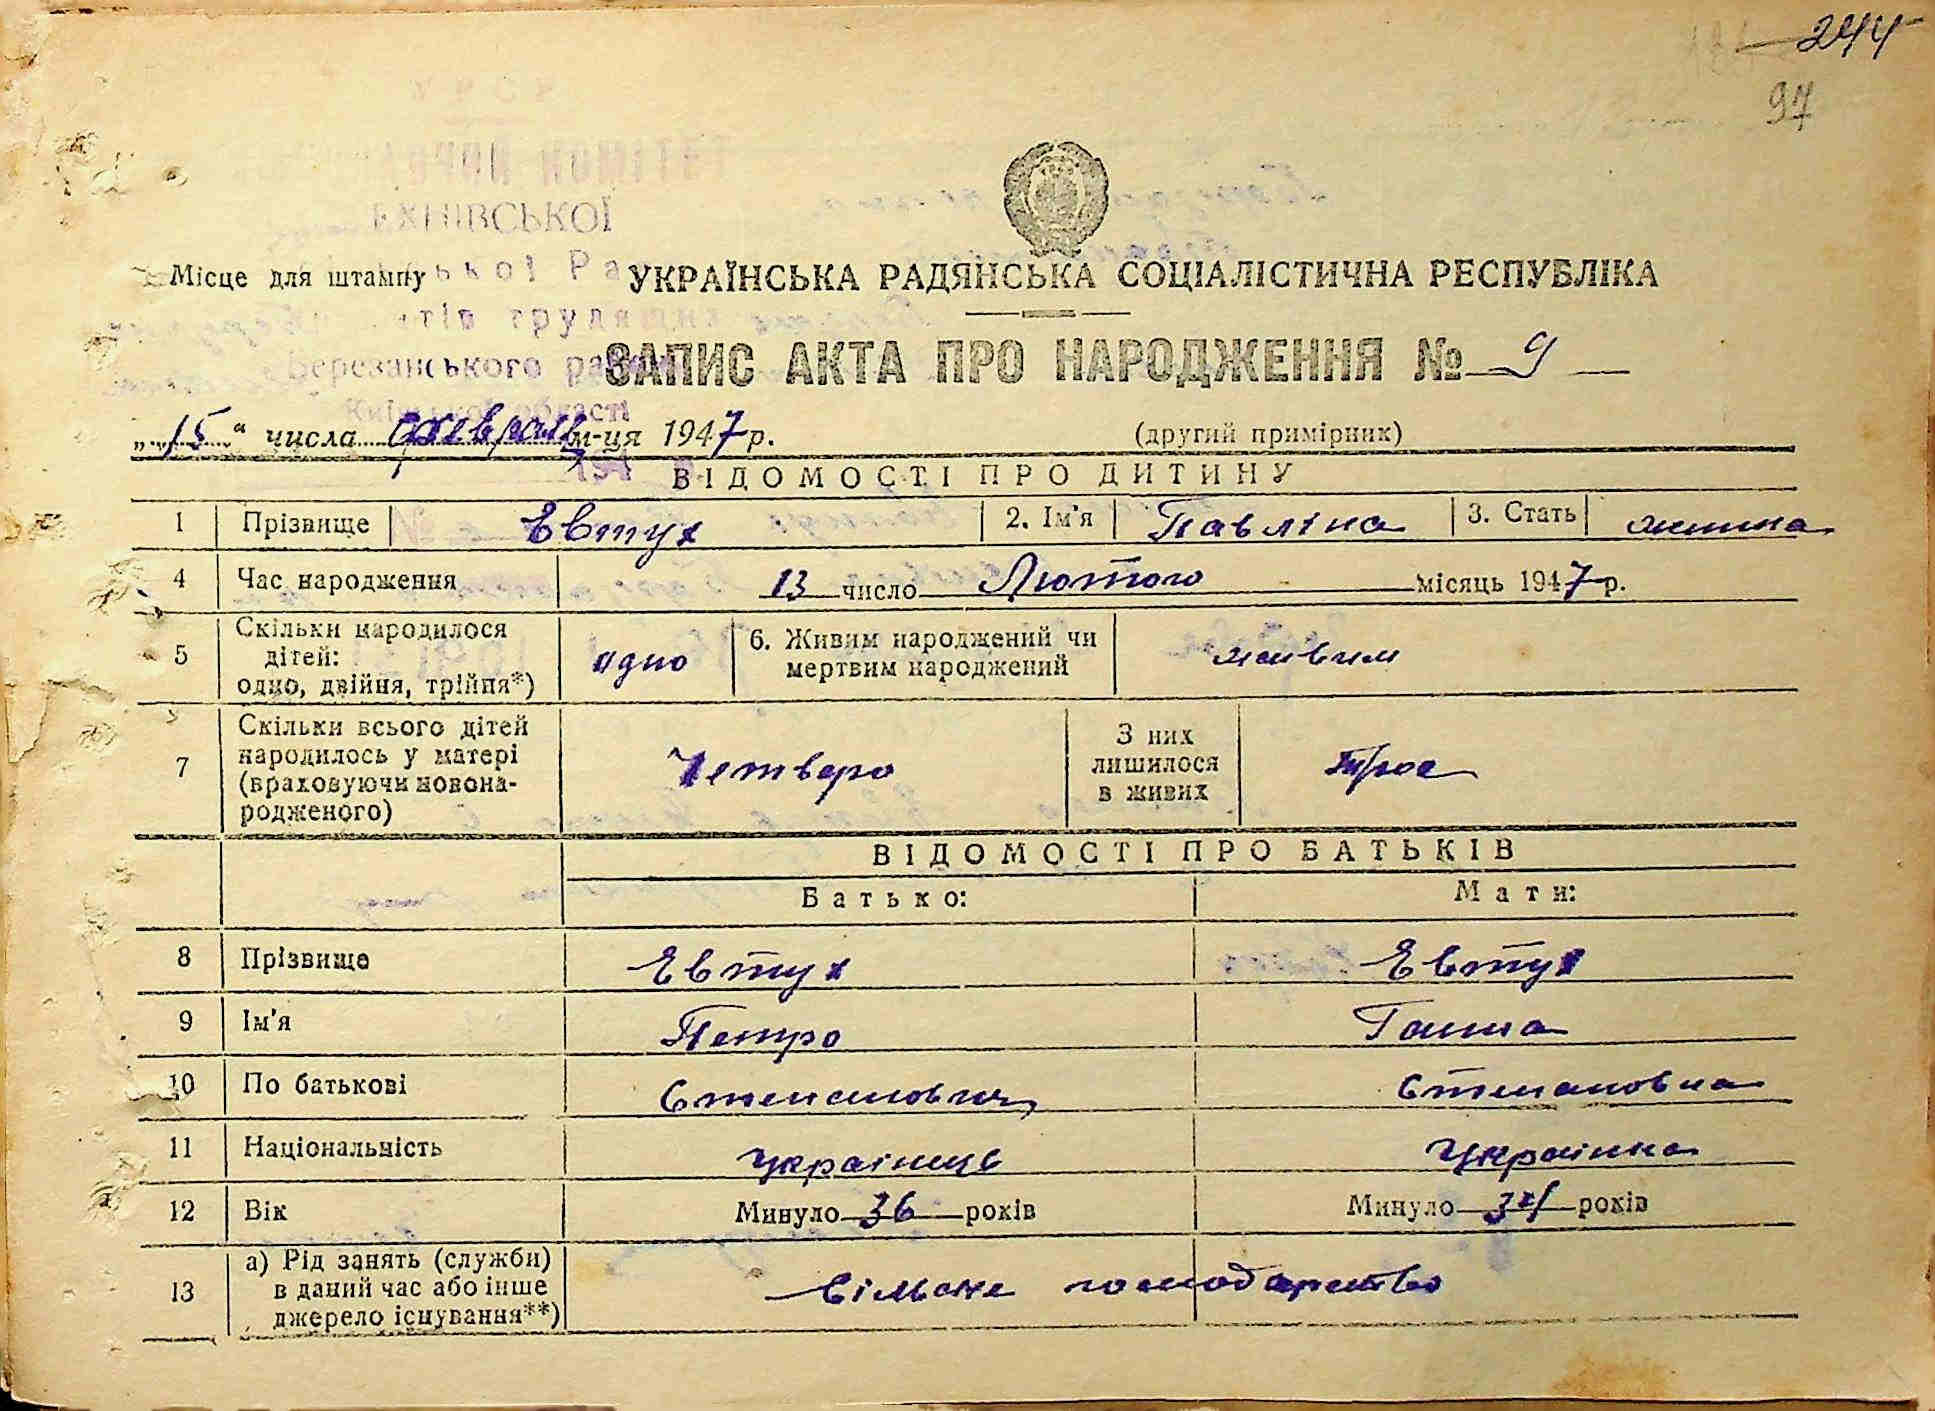 244
97
УРСР
КОМІТЕТ
ЕХНІВСЬКОЇ
Місце для штампу
УКРАЇНСЬКА РАДЯНСЬКА СОЦІАЛІСТИЧНА РЕСПУБЛІКА
трудящих
Березанського району
Київської області
ЗАПИС АКТА ПРО НАРОДЖЕННЯ № 9
„15“ числа февраль м-ця 1947 р. (другий примірник)
194
ВІДОМОСТІ ПРО ДИТИНУ
1 Прізвище Евтух 2. Ім'я Павліна 3. Стать жиноча
4 Час народження 13 число Лютого місяць 1947 р.
5 Скільки народилося дітей: одно, двійня, трійня*) одно 6. Живим народжений чи мертвим народжений живим
7 Скільки всього дітей народилось у матері (враховуючи новонародженого) Четверо З них лишилося в живих Троє
ВІДОМОСТІ ПРО БАТЬКІВ
Батько: Мати:
8 Прізвище Евтух Евтух
9 Ім'я Петро Ганна
10 По батькові Степанович Степановна
11 Національність Украінець Украінка
12 Вік Минуло 36 років Минуло 34 років
13 а) Рід занять (служби) в даний час або інше джерело існування**) Сільске господарство